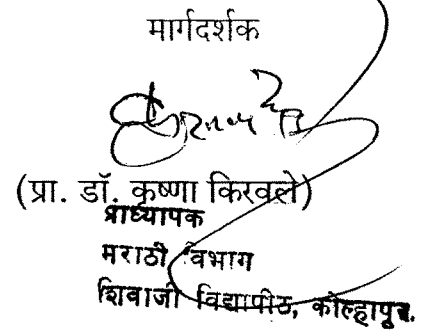 मार्गदर्शक
(प्रा. डॉ. कृष्णा किरवले)
प्राध्यापक
मराठी विभाग
शिवाजी विद्यापीठ, कोल्हापूर.